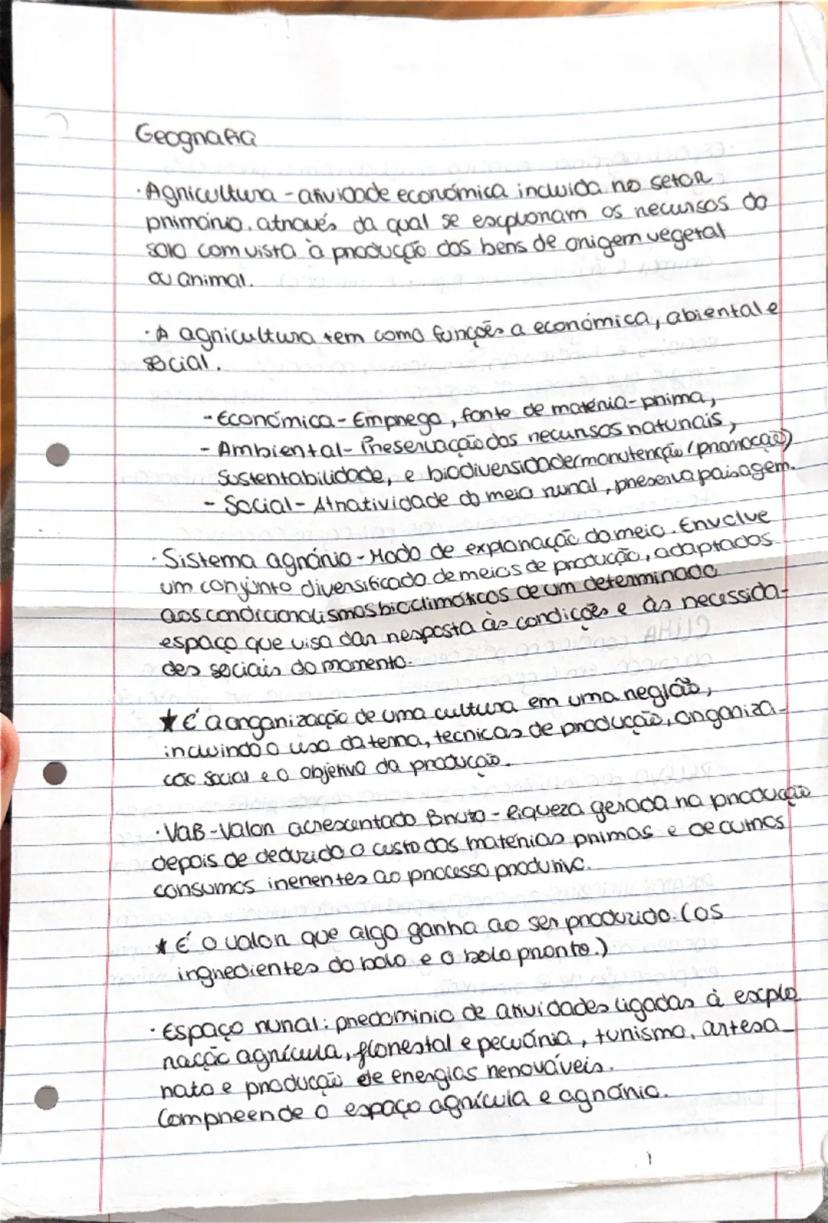 Geografia
· Agricultura - atividade económica incluida no setor
primário, através da qual se exploram os recursos do
solo com vista à produção dos bens de origem vegetal
ou animal.
· A agricultura tem como funções a económica, abiental e
social.
- Económica - Emprega, fonte de matéria-prima,
- Ambiental - Preservação dos recursos naturais,
sustentabilidade, e biodiversidade (manutenção/promoção)
- Social - Atratividade do meio rural, preserva paisagem.
· Sistema agrário - Modo de exploração do meio. Envolve
um conjunto diversificado de meios de produção, adaptados
aos condicionalismos bioclimáticos de um determinado
espaço que visa dar resposta às condições e às necessida-
des sociais do momento.
★ É a organização de uma cultura em uma região,
incluindo o uso da terra, tecnicas de produção, organiza-
ção social e o objetivo da produção.
· VAB - Valor acrescentado Bruto - Riqueza gerada na produção
depois de deduzido o custo das matérias primas e de outros
consumos inerentes ao processo produtivo.
★ É o valor que algo ganha ao ser produzido. (os
ingredientes do bolo e o bolo pronto.)
· Espaço rural: predominio de atividades ligadas à explo
ração agrícula, florestal e pecuária, turismo, artesa_
nato e produção de energias renováveis.
Compreende o espaço agrícula e agrário.